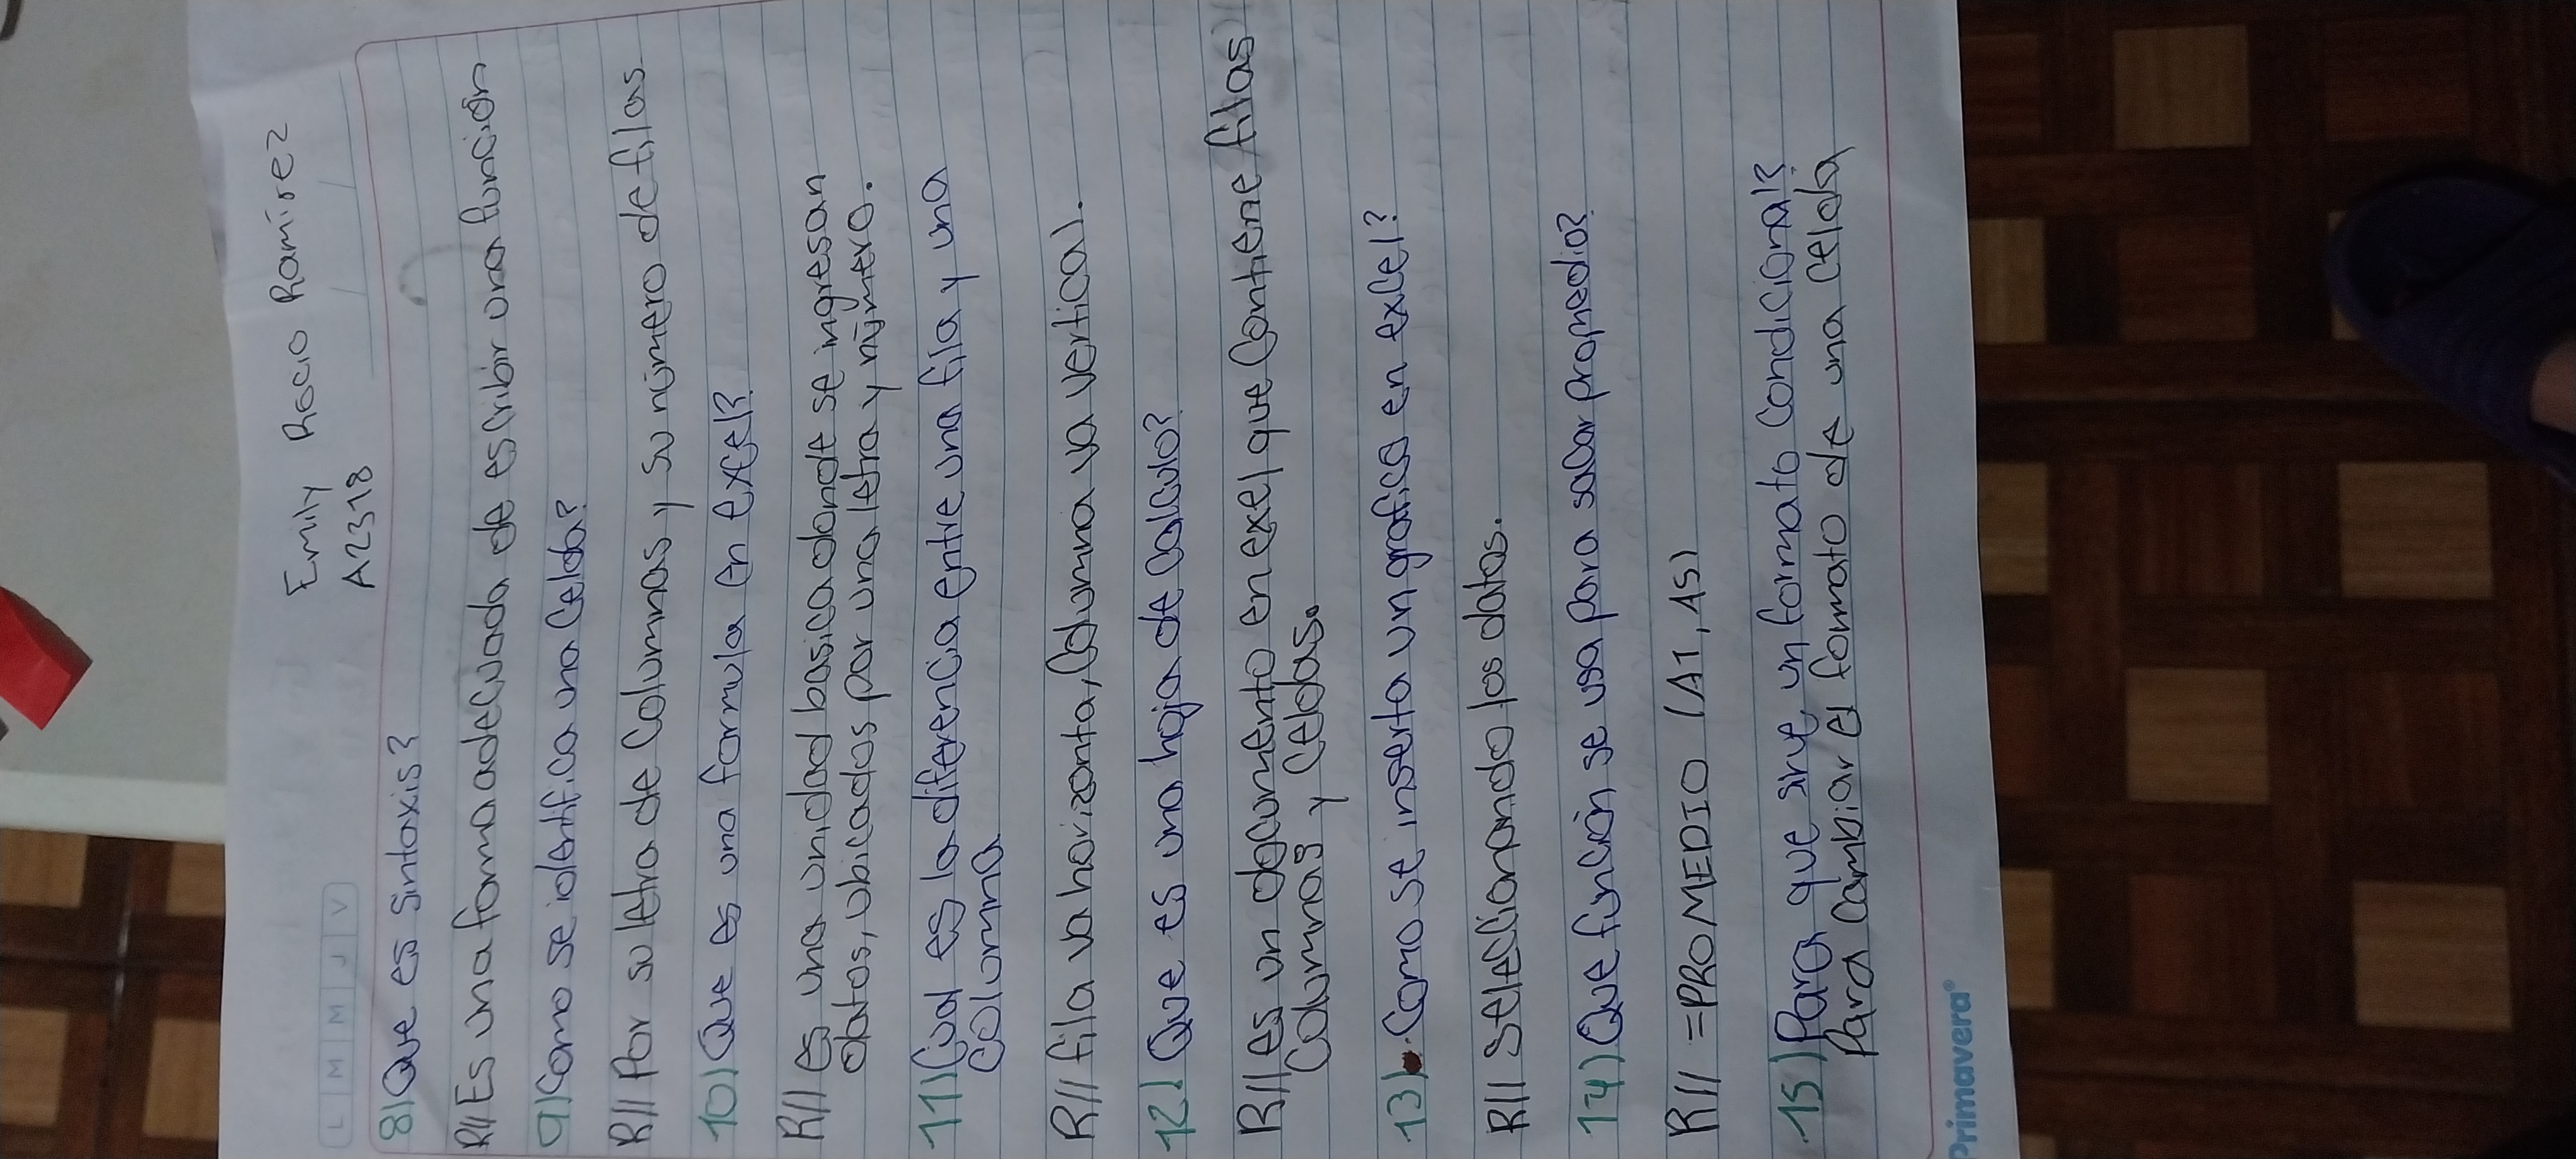 Emily Rocio Ramirez
A2318
L M M J V
8) Que es Sintaxis?
R// Es una forma adecuada de escribir una función
9) Como se identifica una Celda?
R// Por su letra de Columnas y su número de filas
10) Que es una formula en excel?
R// es una unidad basica donde se ingresan
datos, ubicados por una letra y número.
11) Cual es la diferencia entre una fila y una
columna
R// fila va horizonta, Columna va vertical.
12) Que es una hoja de Calculo?
R// es un documento en exel que Contiene filas
Columnas y Celdas.
13) Como se inserta un grafica en excel?
R// Seleccionando los datos.
14) Que función se usa para sacar promedio?
R// =PROMEDIO (A1, A5)
15) Para que sirve un formato Condicional?
Para Cambiar el formato de una celda
Primavera®